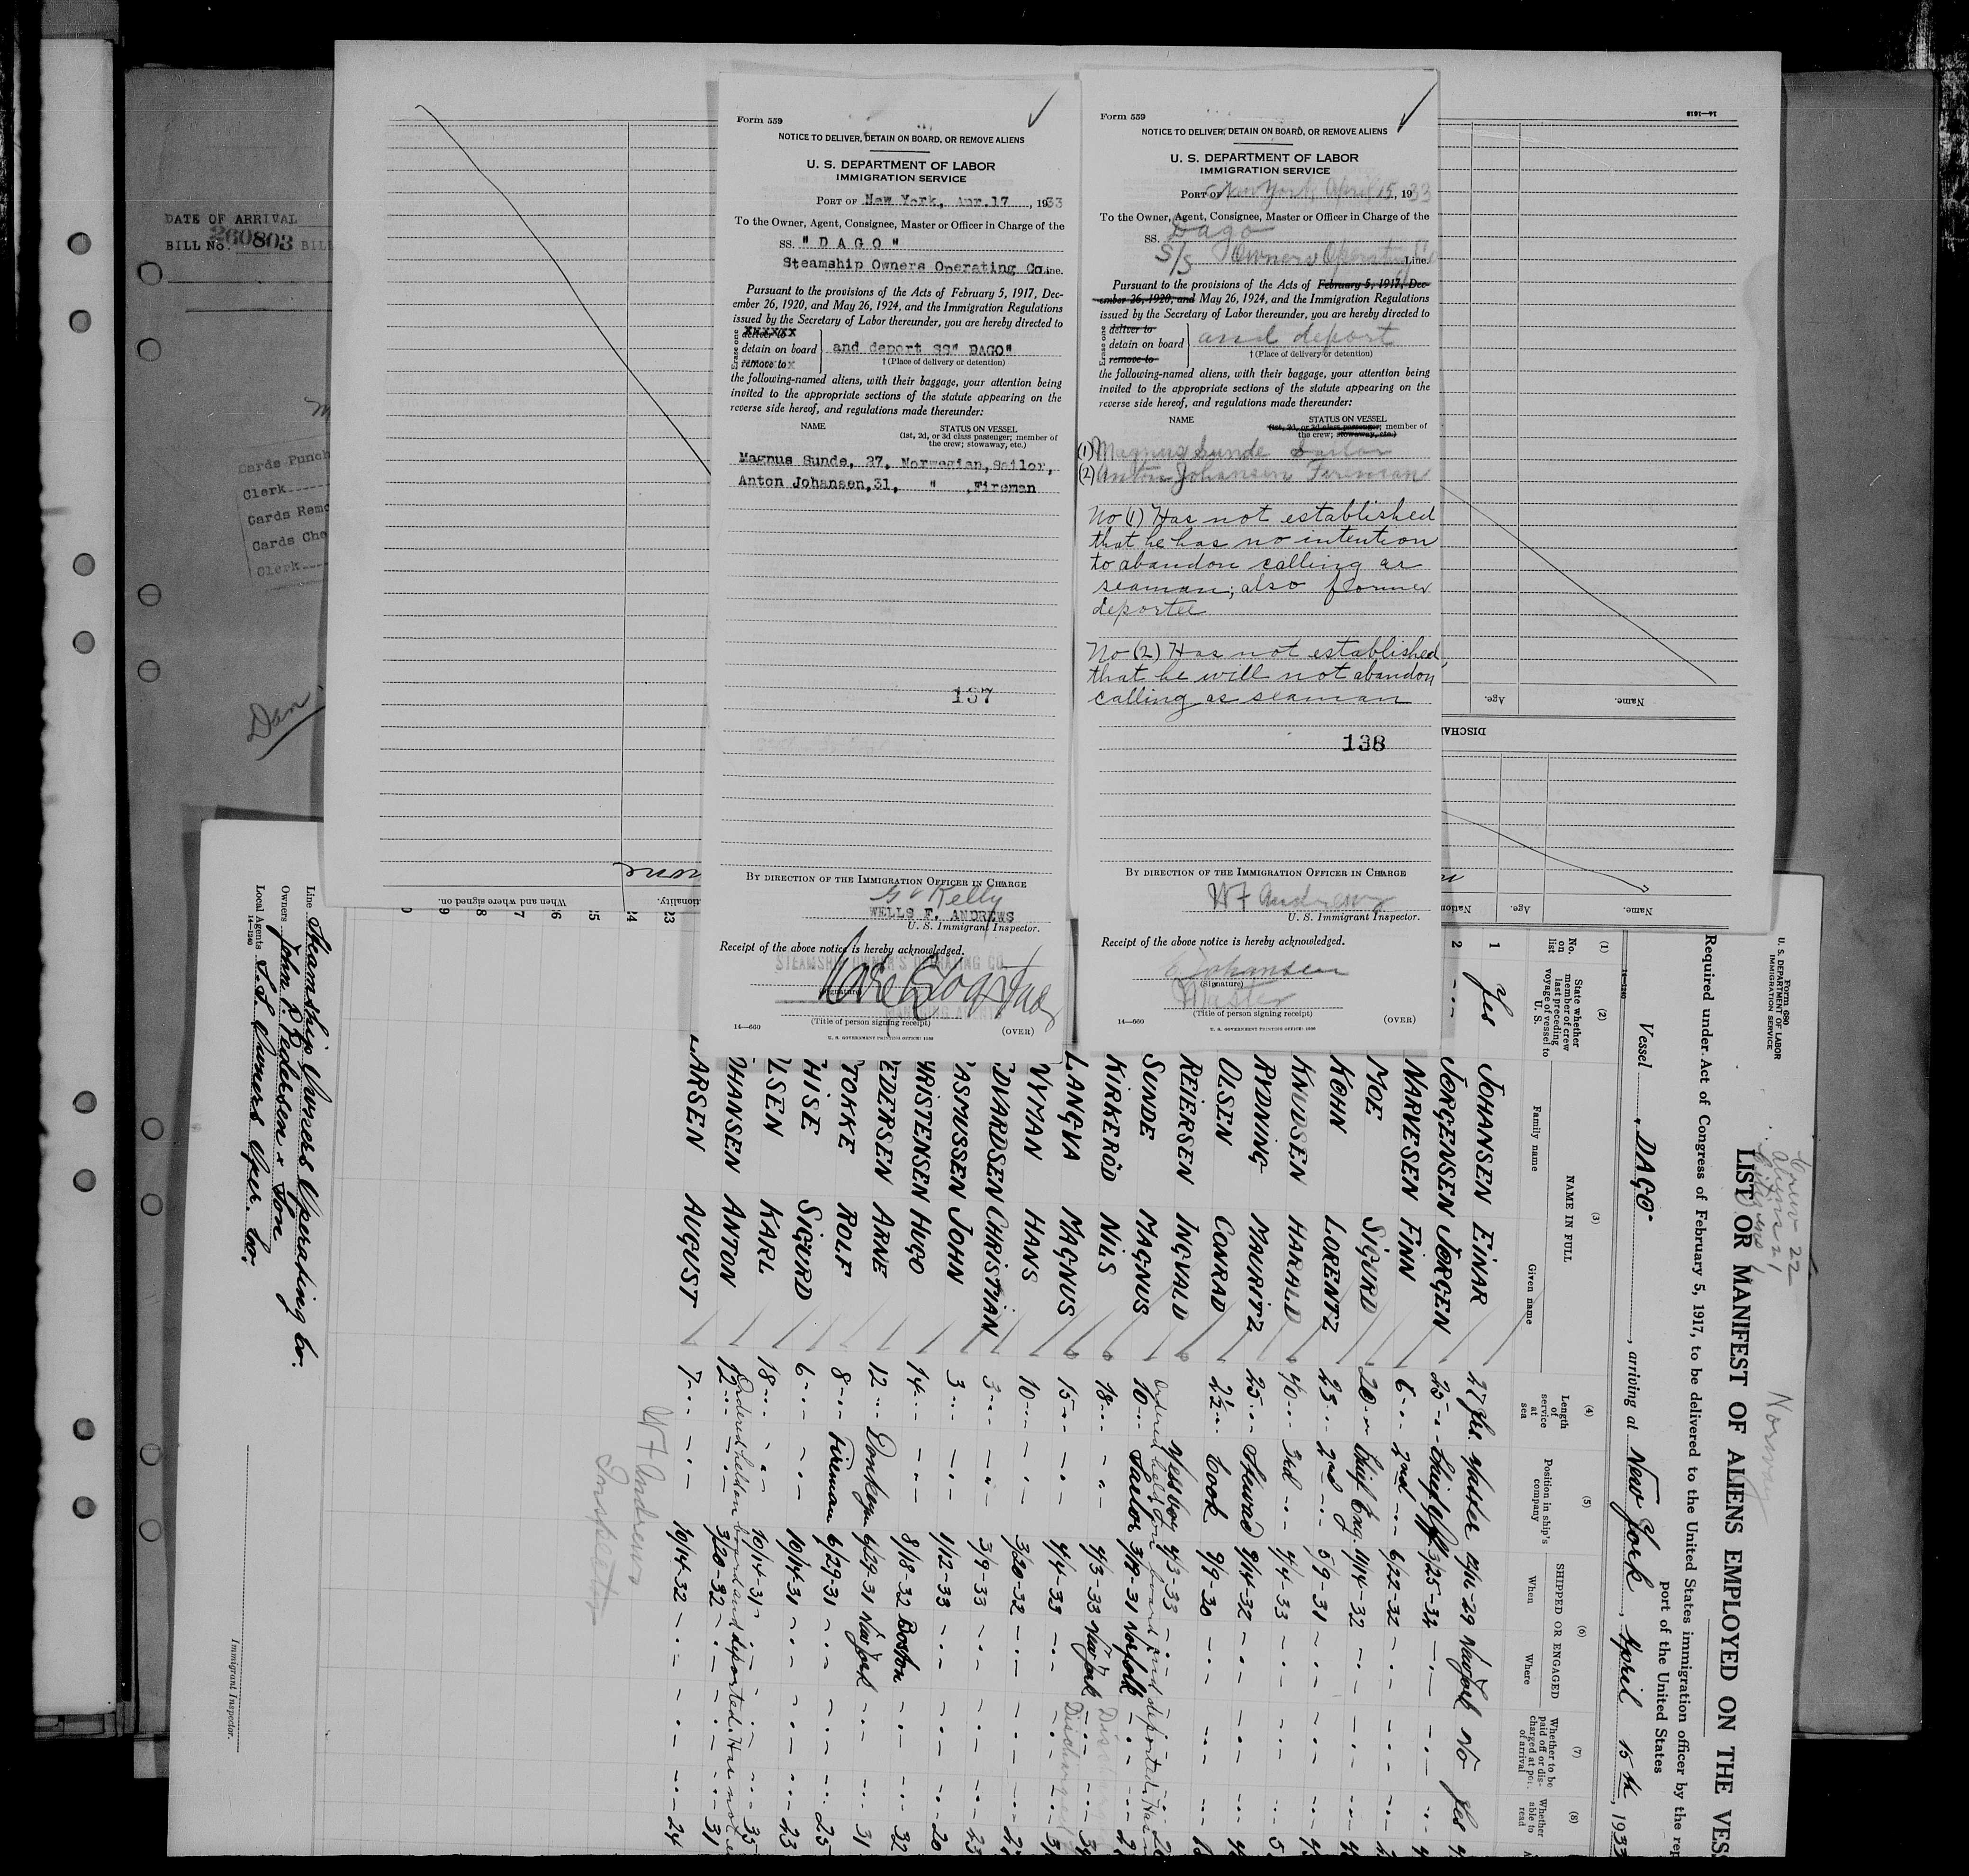 DATE OF ARRIVAL
BILL No. 260803 BILL
Cards Punch
Clerk
Cards Remo
Cards Che
Clerk
Dan
Form 559
NOTICE TO DELIVER, DETAIN ON BOARD, OR REMOVE ALIENS
U. S. DEPARTMENT OF LABOR
IMMIGRATION SERVICE
PORT OF New York, Apr.17, 1933
To the Owner, Agent, Consignee, Master or Officer in Charge of the
SS. " D A G O "
Steamship Owners Operating Co. Line.
Pursuant to the provisions of the Acts of February 5, 1917, Dec-
ember 26, 1920, and May 26, 1924, and the Immigration Regulations
issued by the Secretary of Labor thereunder, you are hereby directed to
Erase one
deliver to
detain on board } and deport SS" DAGO"
remove to
† (Place of delivery or detention)
the following-named aliens, with their baggage, your attention being
invited to the appropriate sections of the statute appearing on the
reverse side hereof, and regulations made thereunder:
NAME STATUS ON VESSEL
(1st, 2d, or 3d class passenger; member of
the crew; stowaway, etc.)
Magnus Sunde, 27, Norwegian, Sailor,
Anton Johansen, 31, " , Fireman
137
BY DIRECTION OF THE IMMIGRATION OFFICER IN CHARGE
Kelly
WELLS F. ANDREWS
U. S. Immigrant Inspector.
Receipt of the above notice is hereby acknowledged.
STEAMSHIP OWNER'S OPERATING CO.
(Signature)
(Title of person signing receipt)
14—660
(OVER)
U. S. GOVERNMENT PRINTING OFFICE
Form 559
NOTICE TO DELIVER, DETAIN ON BOARD, OR REMOVE ALIENS
U. S. DEPARTMENT OF LABOR
IMMIGRATION SERVICE
PORT OF New York, April 15, 1933
To the Owner, Agent, Consignee, Master or Officer in Charge of the
SS. Dago
S/S Owners Operating Line.
Pursuant to the provisions of the Acts of February 5, 1917, Dec-
ember 26, 1920, and May 26, 1924, and the Immigration Regulations
issued by the Secretary of Labor thereunder, you are hereby directed to
Erase one
deliver to
detain on board } and deport
remove to
† (Place of delivery or detention)
the following-named aliens, with their baggage, your attention being
invited to the appropriate sections of the statute appearing on the
reverse side hereof, and regulations made thereunder:
NAME STATUS ON VESSEL
(1st, 2d, or 3d class passenger; member of
the crew; stowaway, etc.)
(1) Magnus Sunde Sailor
(2) Anton Johansen Fireman
No (1) Has not established
that he has no intention
to abandon calling as
seaman; also former
deportee
No (2) Has not established
that he will not abandon
calling as seaman
138
BY DIRECTION OF THE IMMIGRATION OFFICER IN CHARGE
W F Andrews
U. S. Immigrant Inspector.
Receipt of the above notice is hereby acknowledged.
E Johansen
(Signature)
Master
(Title of person signing receipt)
14—660
(OVER)
U. S. GOVERNMENT PRINTING OFFICE
Name.
Age.
DISCHAR
Name.
Age.
When and where signed on.
Form 680
U. S. DEPARTMENT OF LABOR
IMMIGRATION SERVICE
Crew 22
Aliens 21
Citizens 1
Norway
LIST OR MANIFEST OF ALIENS EMPLOYED ON THE VESS
Required under Act of Congress of February 5, 1917, to be delivered to the United States immigration officer by the rep
port of the United States
Vessel "DAGO", arriving at New York, April 15th, 1933
(1) (2) (3) (4) (5) (6) (7) (8)
No. on list
State whether member of crew last preceding voyage of vessel to U. S.
NAME IN FULL
Family name Given name
Length of service at sea
Position in ship's company
SHIPPED OR ENGAGED
When Where
Whether to be paid off or discharged at port of arrival
Whether able to read
1 Yes JOHANSEN EINAR 27 yrs. Master New York No Yes
2 JORGENSEN JORGEN 25
NARVESEN FINN 6 2nd 6/22-32
MOE SIGURD 20 Chief Eng. 11/14-32
KOHN LORENTZ 23 2nd 5/9-31
KNUDSEN HARALD 40 3rd 4/4-33
RYDNING MAURITZ 25 Steward 9/14-32
OLSEN CONRAD 2½ Cook 9/9-30
REIERSEN INGVALD Messboy 4/3-33
Ordered held on board and deported. Has n
SUNDE MAGNUS 10 Sailor Norfolk
KIRKERÖD NILS 18 4/3-33 New York
LANGVA MAGNUS 15 4/4-33 Discharged
NYMAN HANS 10 3/20-32
DVARDSEN CHRISTIAN 3 3/9-33 23
ASMUSSEN JOHN 3 1/12-33 20
HRISTENSEN HUGO 14 8/18-32 Boston 32
EDERSEN ARNE 12 Donkeym 6/29-31 New York 31
TOKKE ROLF 8 Fireman 6/29-31 25
HISE SIGURD 6 10/14-31 23
LSEN KARL 18 10/14-31 35
Ordered held on board and deported. Has not e
OHANSEN ANTON 12 3/20-32 31
LARSEN AUGUST 7 10/14-32 24
W F Andrews
Inspector
Line Steamship Owners Operating Co.
Owners John P. Pedersen & Son
Local Agents S.S. Owners Oper. Co.
14—1240
Immigrant Inspector.